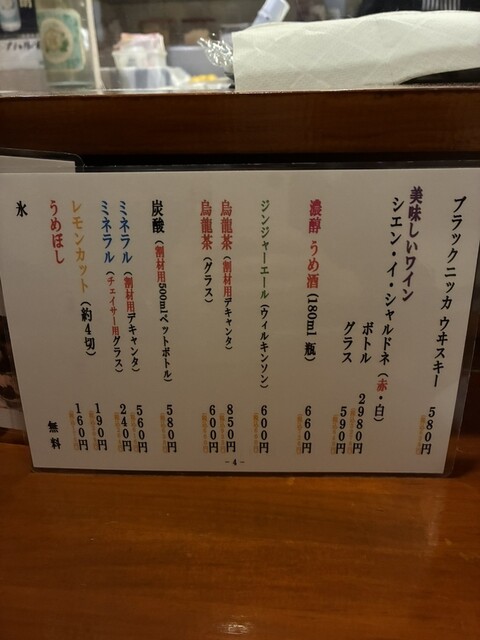 ブラックニッカ ウヰスキー 580円
美味しいワイン
シエン・イ・シャルドネ（赤・白）
ボトル 2980円
グラス 590円
濃醇 うめ酒（180ml 瓶） 660円
ジンジャーエール（ウィルキンソン） 600円
烏龍茶（割材用デキャンタ） 850円
烏龍茶（グラス） 600円
炭酸（割材用500mlペットボトル） 580円
ミネラル（割材用デキャンタ） 560円
ミネラル（チェイサー用グラス） 240円
レモンカット（約4切） 190円
うめぼし 160円
氷 無料
-4-